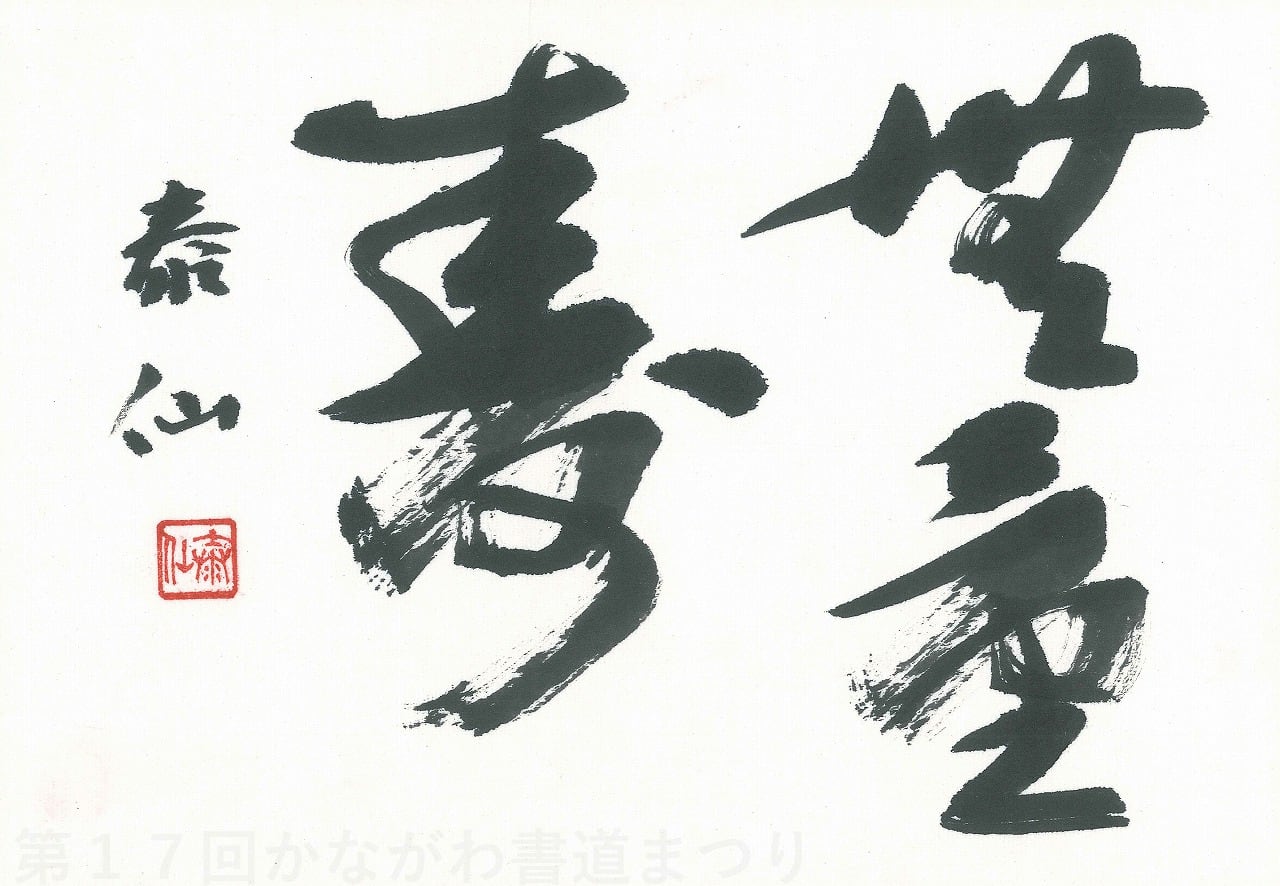 無量
壽
泰仙
泰仙
第１７回かながわ書道まつり